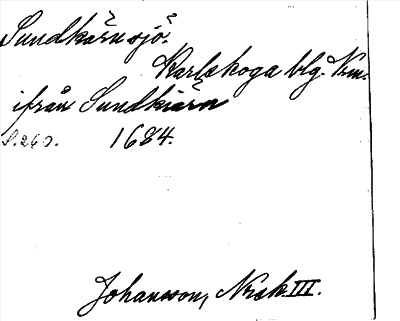 Sundkärnsjö.
Karlskoga blg. Vrm.
ifrån Sundkiärn
S. 260. 1684.
Johansson, Norsk. III.